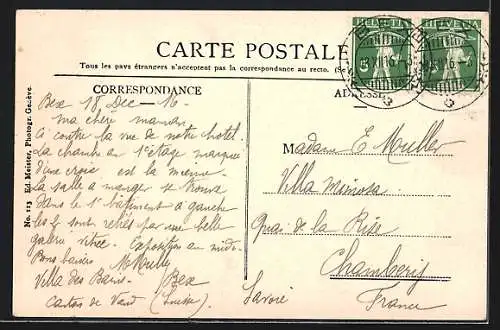 CARTE POSTALE
Tous les pays étrangers n'acceptent pas la correspondance au recto. (Se
CORRESPONDANCE
ADRESSE
HELVETIA HELVETIA
5 5
No. 113 Ed. Meister, Photogr. Genève.
Bex 18 Dec — 16 —
ma chère maman
Ci contre la vue de notre hotel.
La chambre au 1er étage marquée
d'une croix est la mienne
La salle a manger se trouve
dans le 1er batiment à gauche
les sont reliés par une belle
galerie vitrée. Exposition au midi.
Bons baisers MMuller
Villa des Bains — Bex
Canton de Vaud (Suisse)
Madame E Muller
Villa Mimosa
Quai de la Rise
Chambery
Savoie
France